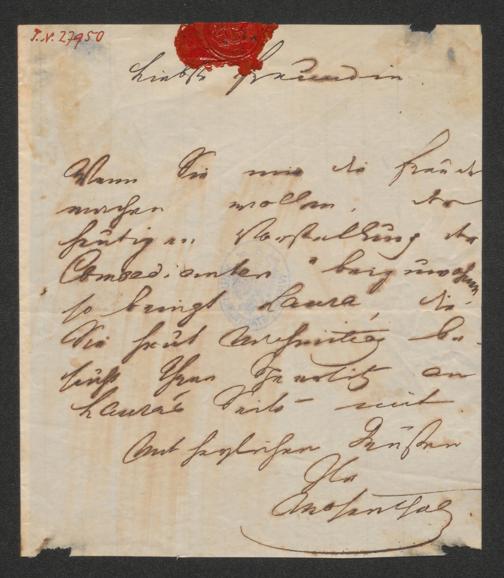 I.N. 27950
Liebste Freundin
Wenn Sie mir die Freude
machen wollen, der
heutigen Vorstellung der
"Comoedianten" beizuwohnen
so bringt Laura, die
Sie heut Nachmittag be-
sucht Ihnen Ihr an
Laura's Seite mit.
Mit herzlichen Grüßen
Ihr
Mosenthal